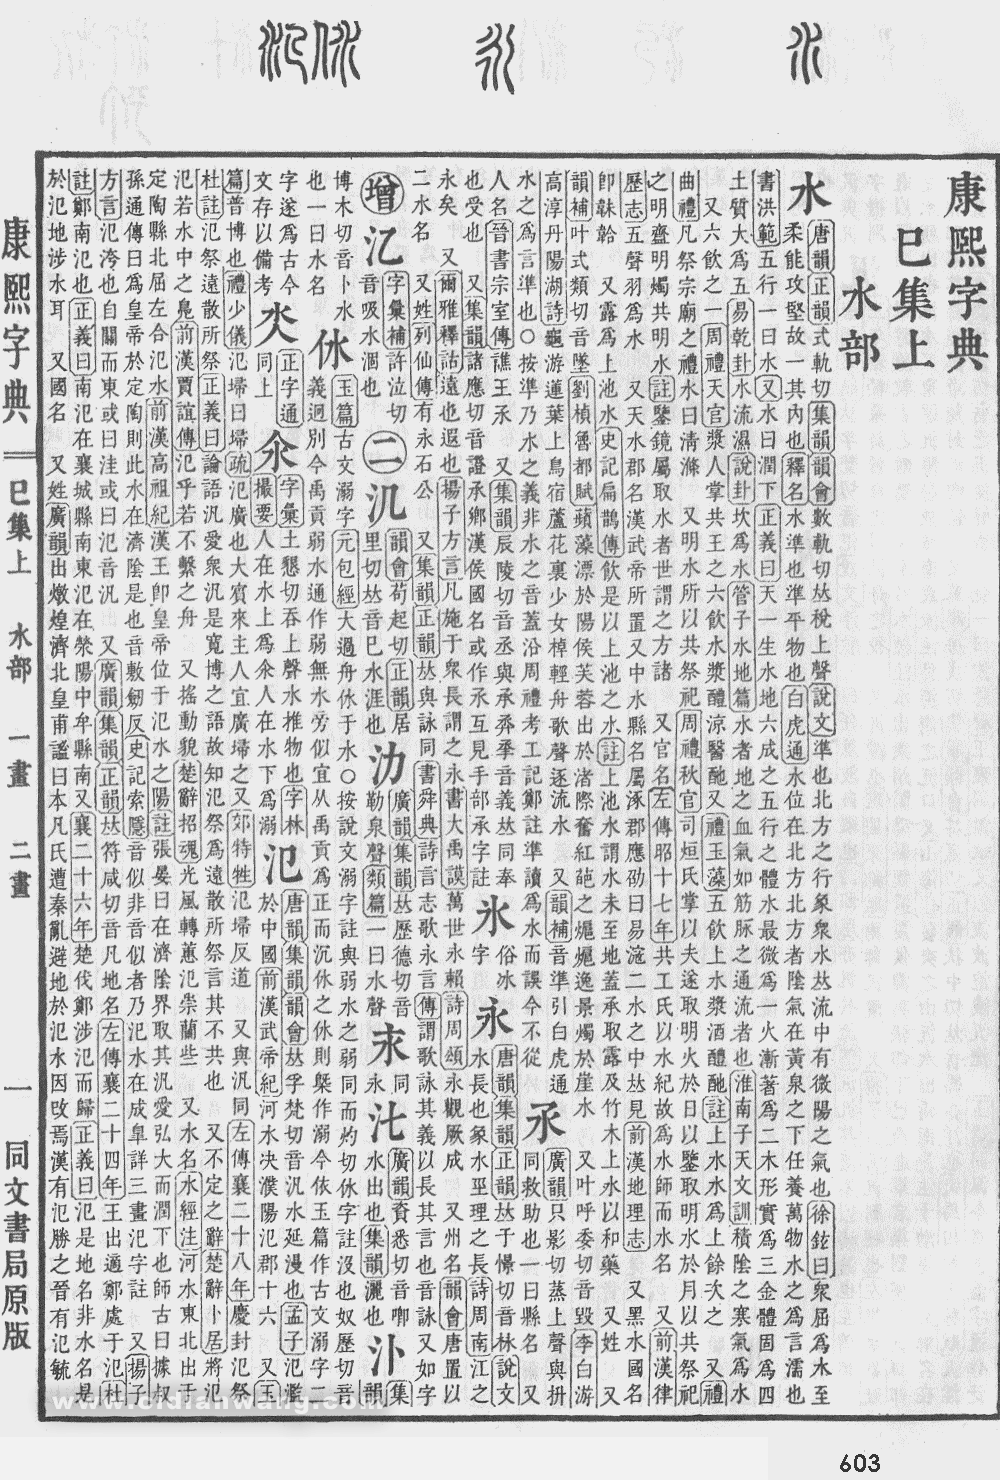 康熙字典
巳集上
水部
水 唐韻正韻式軌切集韻韻會數軌切𠀤稅上聲說文準也北方之行象衆水𠀤流中有微陽之氣也徐鉉曰衆屈爲水至
柔能攻堅故一其內也釋名水準也準平物也白虎通水位在北方北方者陰氣在黃泉之下任養萬物水之爲言濡也
書洪範五行一曰水又水曰潤下正義曰天一生水地六成之五行之體水最微爲一火漸著爲二木形實爲三金體固爲四
土質大爲五易乾卦水流濕說卦坎爲水管子水地篇水者地之血氣如筋脉之通流者也淮南子天文訓積陰之寒氣爲水
又六飲之一周禮天官漿人掌共王之六飲水漿醴涼醫酏又禮玉藻五飲上水漿酒醴酏註上水水爲上餘次之 又禮
曲禮凡祭宗廟之禮水曰清滌 又明水所以共祭祀周禮秋官司烜氏掌以夫遂取明火於日以鑒取明水於月以共祭祀
之明齍明燭共明水註鑒鏡屬取水者世謂之方諸 又官名左傳昭十七年共工氏以水紀故爲水師而水名 又前漢律
歷志五聲羽爲水 又天水郡名漢武帝所置又中水縣名屬涿郡應劭曰易滱二水之中𠀤見前漢地理志 又黑水國名
卽靺鞈 又露爲上池水史記扁鵲傳飲是以上池之水註上池水謂水未至地蓋承取露及竹木上水以和藥 又姓 又
韻補叶式類切音墜劉楨魯都賦蘋藻漂於陽侯芙蓉出於渚際奮紅葩之逸景燭於崖水 又叶呼委切音毀李白游
高淳丹陽湖詩龜游蓮葉上鳥宿蘆花裏少女棹輕舟歌聲逐流水 又韻補音準引白虎通
水之爲言準也○按準乃水之義非水之音蓋沿周禮考工記鄭註準讀爲水而誤今不從
氶 廣韻只影切蒸上聲與拼
同救助也一曰縣名 又
人名晉書宗室傳譙王氶 又集韻辰陵切音丞與承丞𠀤同奉
也受也 又集韻諸應切音證承鄉漢侯國名或作氶互見手部承字註
氷 俗冰字
永 唐韻集韻正韻𠀤于憬切音栐說文
水長也象水巠理之長詩周南江之
永矣 又爾雅釋詁遠也遐也揚子方言凡施于衆長謂之永書大禹謨萬世永賴詩周頌永觀厥成 又州名韻會唐置以
二水名 又姓列仙傳有永石公 又集韻正韻𠀤與詠同書舜典詩言志歌永言傳謂歌詠其義以長其言也音詠又如字
增 氾 字彙補許泣切
音吸水涸也
二 氿 韻會苟起切正韻居
里切𠀤音巳水涯也
氻 廣韻集韻𠀤歷德切音
勒泉聲類篇一曰水聲
永同
廣韻資悉切音喞
水出也集韻灑也
汴 集韻
博木切音卜水名
也一曰水名
㲻 玉篇古文溺字元包經大過舟㲻于水○按說文溺字註與弱水之弱同而灼切㲻字註沒也奴歷切音
義迥別今禹貢弱水通作弱無水旁似宜从禹貢爲正而沉㲻之㲻則槩作溺今依玉篇作古文溺字二
字遂爲古今
文存以備考
正字通
同上
汆 字彙土懇切吞上聲水推物也字林
撮要人在水上爲汆人在水下爲溺
氾 唐韻集韻韻會𠀤孚梵切音汎水延漫也孟子氾濫
於中國前漢武帝紀河水決濮陽氾郡十六 又王
篇普博也禮少儀氾埽曰埽疏氾廣也大賓來主人宜廣埽之又郊特牲氾埽反道 又與汎同左傳襄二十八年慶封氾祭
杜註氾祭遠散所祭正義曰論語汎愛衆汎是寬博之語故知氾祭爲遠散所祭言其不共也 又不定之辭楚辭卜居將氾
氾若水中之鳧前漢賈誼傳氾乎若不繫之舟 又搖動貌楚辭招魂光風轉蕙氾崇蘭些 又水名水經注河水東北出于
定陶縣北屈左合氾水前漢高祖紀漢王卽皇帝位于氾水之陽註張晏曰在濟陰界取其汎愛弘大而潤下也師古曰據叔
孫通傳曰爲皇帝於定陶則此水在濟陰是也音敷劒反史記索隱音似非音似者乃汜水在成皐詳三畫汜字註 又揚子
方言氾洿也自關而東或曰洼或曰氾音汎 又廣韻集韻正韻𠀤符咸切音凡地名左傳襄二十四年王出適鄭處于氾杜
註鄭南氾也正義曰南氾在襄城縣南東氾在滎陽中牟縣南又襄二十六年楚伐鄭涉氾而歸正義曰氾是地名非水名是
於氾地涉水耳 又國名 又姓廣韻出燉煌濟北皇甫謐曰本凡氏遭秦亂避地於氾水因改焉漢有氾勝之晉有氾毓
康熙字典
巳集上 水部 一畫 二畫
一
同文書局原版
www.cidianwang.com
603